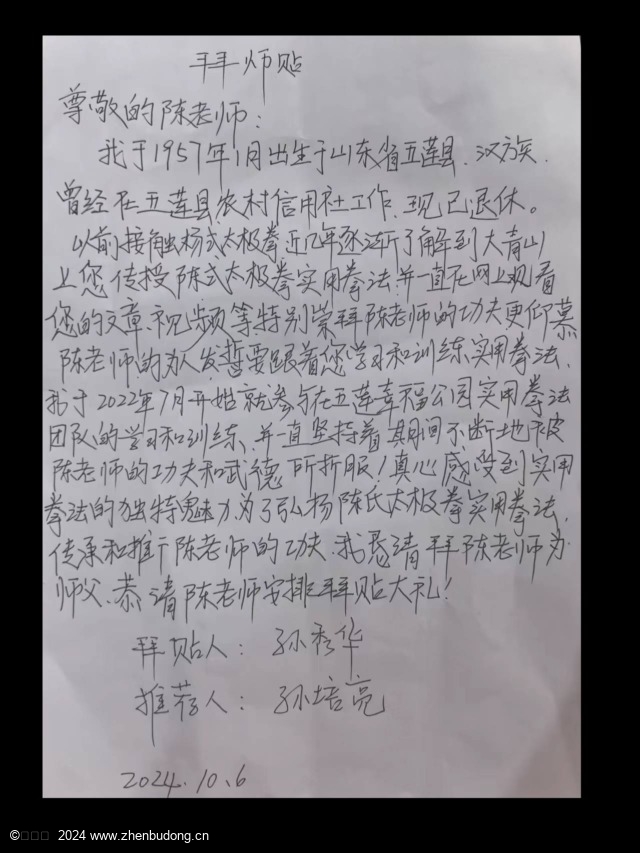 拜师贴
尊敬的陈老师：
我于1957年1月出生于山东省五莲县、汉族、
曾经在五莲县农村信用社工作、现已退休。
以前接触杨式太极拳近几年逐渐了解到大青山
上您传授陈式太极拳实用拳法、并一直在网上观看
您的文章、视频等、特别崇拜陈老师的功夫更仰慕
陈老师的为人发誓要跟着您学习和训练实用拳法、
我于2022年7月开始就参与在五莲幸福公园实用拳法
团队的学习和训练、并一直坚持着、期间不断地被
陈老师的功夫和武德所折服！真心感受到实用
拳法的独特魅力为了弘扬陈氏太极拳实用拳法、
传承和推广陈老师的功夫、我恳请拜陈老师为
师父、恭请陈老师安排拜贴大礼！
拜贴人：孙秀华
推荐人：孙培亮
2024.10.6
© 2024 www.zhenbudong.cn